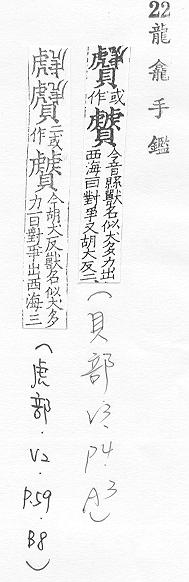 22 龍龕手鑑
贙或作 今音縣獸名似犬多力出
西海曰對爭又胡犬反二
(貝部·V3·P4·A3)
二或作 今胡犬反獸名似犬多
力一曰對爭出西海三
(虎部·V2·P.59·B8)